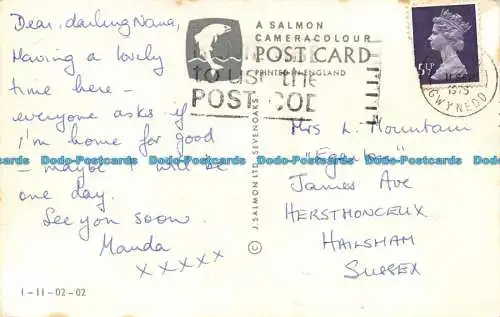 Dear, darling Nana,
Having a lovely
time here -
everyone asks if
I'm home for good
- maybe I will be
one day.
See you soon.
Manda
x x x x x
1-11-02-02
A SALMON
CAMERACOLOUR
POST CARD
PRINTED IN ENGLAND
TO USE the
POST COD
© J. SALMON LTD., SEVENOAKS
5½P
1975
GWYNEDD
Mrs L. Mountain
James Ave
HERSTMONCEUX
HAILSHAM
SUSSEX
Postcards Todo-Postcards Todo-Postcards Todo-Postcards Todo-Postcards Todo-Postcards